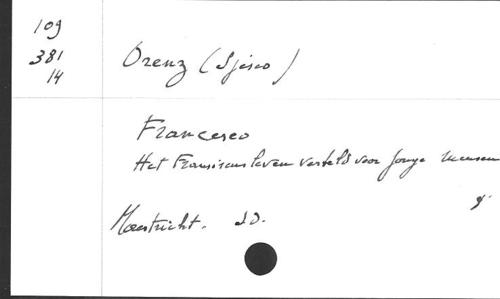 109
381
14
Orenz (Sjisco)
Francesco
Het Fransiscusleven verteld voor jonge mensen
Maastricht. S.D.